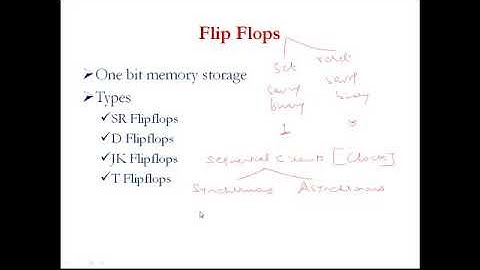 Flip Flops
Set Reset
➢One bit memory storage
➢Types
✓SR Flipflops
✓D Flipflops
✓JK Flipflops
✓T Flipflops
1
Sequential Circuits [Clock]
Synchronous Asynchronous